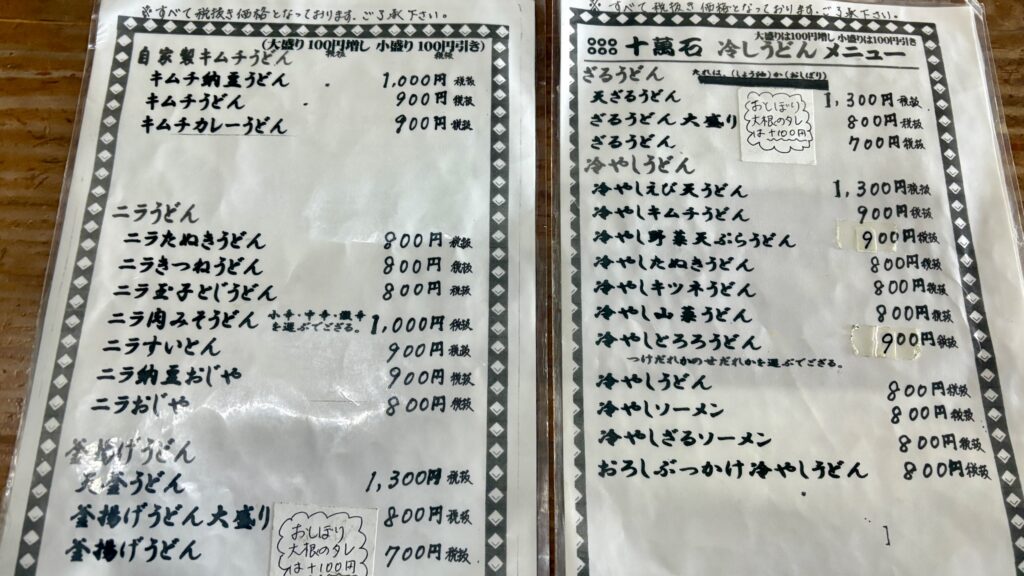 ※すべて税抜き価格となっております。ご了承下さい。
(大盛り100円増し 小盛り100円引き)
税抜 税抜
自家製キムチうどん
キムチ納豆うどん 1,000円 税抜
キムチうどん 900円 税抜
キムチカレーうどん 900円 税抜
ニラうどん
ニラたぬきうどん 800円 税抜
ニラきつねうどん 800円 税抜
ニラ玉子とじうどん 800円 税抜
ニラ肉みそうどん 小辛・中辛・激辛を選ぶでござる。 1,000円 税抜
ニラすいとん 900円 税抜
ニラ納豆おじや 900円 税抜
ニラおじや 800円 税抜
釜揚げうどん
天釜うどん 1,300円 税抜
釜揚げうどん大盛り 800円 税抜
釜揚げうどん 700円 税抜
おしぼり
大根のタレ
は+100円
※すべて税抜き価格となっております。ご了承下さい。
大盛りは100円増し 小盛りは100円引き
十萬石 冷しうどんメニュー
ざるうどん たれは、(しょうゆ)か(おしぼり)
天ざるうどん 1,300円 税抜
ざるうどん大盛り 800円 税抜
ざるうどん 700円 税抜
おしぼり
大根のタレ
は+100円
冷やしうどん
冷やしえび天うどん 1,300円 税抜
冷やしキムチうどん 900円 税抜
冷やし野菜天ぷらうどん 900円 税抜
冷やしたぬきうどん 800円 税抜
冷やしキツネうどん 800円 税抜
冷やし山菜うどん 800円 税抜
冷やしとろろうどん 900円 税抜
つけだれかのせだれかを選ぶでござる。
冷やしうどん 800円 税抜
冷やしソーメン 800円 税抜
冷やしざるソーメン 800円 税抜
おろしぶっかけ冷やしうどん 800円 税抜